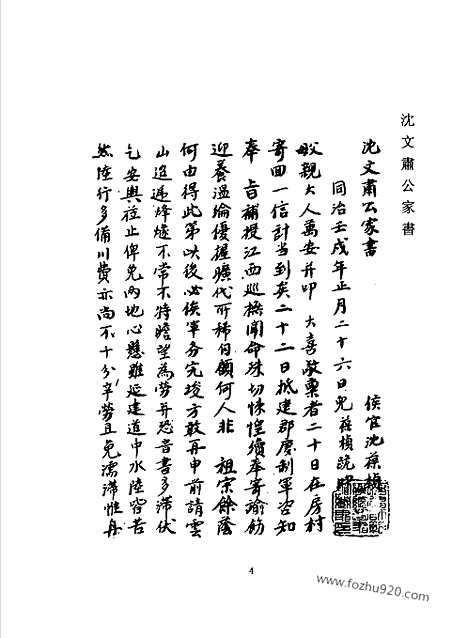 沈文肅公家書
沈文肅公家書　　侯官沈葆楨
同治壬戌年正月二十六日兒葆楨跪叩
父親大人萬安并叩　大喜敬稟者二十日在房村
寄回一信計當到矣二十二日抵建郡慶制軍咨知
奉　旨補授江西巡撫聞命殊切悚惶續奉寄諭飭
迎養溫綸優握曠代所稀自顧何人非　祖宗餘蔭
何由得此第以後必俟軍務完竣方敢再申前請雲
山迢遞烽燧不常不特瞻望為勞并恐音書多滯伏
乞安輿蒞止俾免兩地心懸雖延建道中水陸窅苦
然陸行多備川費亦尚不十分辛勞且免濡滯惟舟
4
www.fozhu920.com